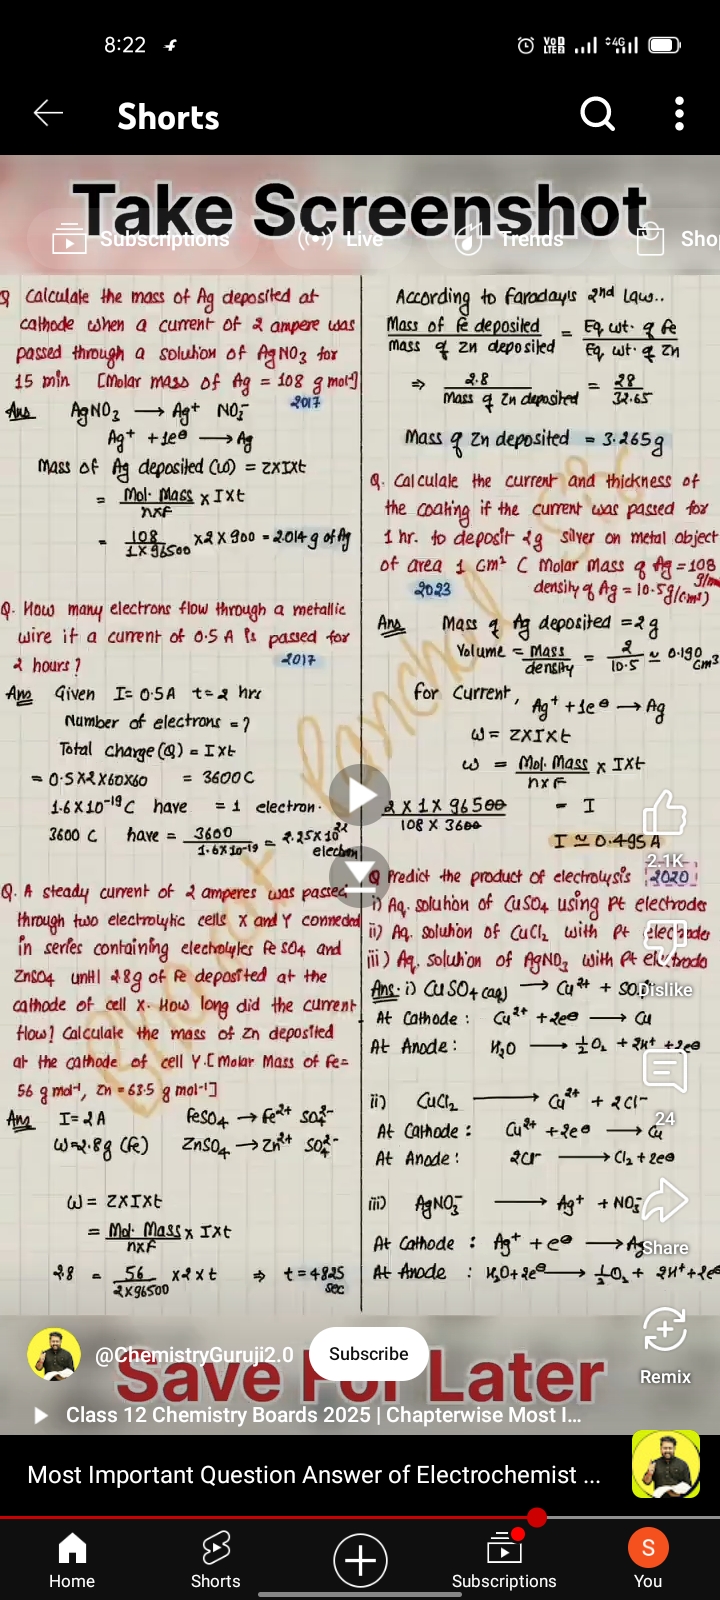 8:22
Vo LTE 4G
Shorts
Take Screenshot
Subscriptions Live Trends Sho
Q Calculate the mass of Ag deposited at
cathode when a current of 2 ampere was
passed through a solution of AgNO₃ for
15 min [Molar mass of Ag = 108 g mol⁻¹]
2017
Ans AgNO₃ → Ag⁺ NO₃⁻
Ag⁺ + 1e⊖ → Ag
Mass of Ag deposited (ω) = ZxIxt
= Mol. Mass / nxF x Ixt
= 108 / 1x96500 x2 x 900 = 2.014 g of Ag
Q. How many electrons flow through a metallic
wire if a current of 0.5 A is passed for
2 hours? 2017
Ans Given I= 0.5A t= 2 hrs
Number of electrons = ?
Total charge (Q) = Ixt
= 0.5x2x60x60 = 3600C
1.6x10⁻¹⁹ C have = 1 electron.
3600 C have = 3600 / 1.6x10⁻¹⁹ = 2.25x10²²
electron
Q. A steady current of 2 amperes was passed
through two electrolytic cells X and Y connected
in series containing electrolytes FeSO₄ and
ZnSO₄ until 2.8g of Fe deposited at the
cathode of cell X. How long did the current
flow? Calculate the mass of Zn deposited
at the cathode of cell Y. [Molar Mass of Fe=
56 g mol⁻¹, Zn = 63.5 g mol⁻¹]
Ans I= 2A FeSO₄ → Fe²⁺ SO₄²⁻
ω=2.8g (Fe) ZnSO₄ → Zn²⁺ SO₄²⁻
ω = ZxIxt
= Mol. Mass / nxF x Ixt
2.8 = 56 / 2x96500 x2 x t ⇒ t = 4825
sec
According to Faraday's 2nd law..
Mass of Fe deposited / Mass of Zn deposited = Eq wt. of Fe / Eq. wt. of Zn
⇒ 2.8 / Mass of Zn deposited = 28 / 32.65
Mass of Zn deposited = 3.265g
Q. Calculate the current and thickness of
the coating if the current was passed for
1 hr. to deposit 2g silver on metal object
of area 1 cm² ( Molar Mass of Ag = 108 g/m
2023 density of Ag = 10.5g/cm³)
Ans Mass of Ag deposited = 2 g
Volume = Mass / density = 2 / 10.5 ≃ 0.190 cm³
for Current, Ag⁺ + 1e⊖ → Ag
ω = ZxIxt
ω = Mol. Mass / nxF x Ixt
2 x 1 x 96500 / 108 x 3600 = I
I ≃ 0.495 A
Q Predict the product of electrolysis 2020
i) Aq. solution of CuSO₄ using Pt electrodes
ii) Aq. solution of CuCl₂ with Pt electrodes
iii) Aq. solution of AgNO₃ with Pt electrodes
Ans. i) CuSO₄ (aq) → Cu²⁺ + SO₄²⁻
At Cathode : Cu²⁺ + 2e⊖ → Cu
At Anode : H₂O → ½O₂ + 2H⁺ + 2e⊖
ii) CuCl₂ → Cu²⁺ + 2Cl⁻
At Cathode : Cu²⁺ + 2e⊖ → Cu
At Anode : 2Cl⁻ → Cl₂ + 2e⊖
iii) AgNO₃⁻ → Ag⁺ + NO₃⁻
At Cathode : Ag⁺ + e⊖ → Ag
At Anode : H₂O + 2e⊖ → ½O₂ + 2H⁺ + 2e⊖
Bharat Panchal Sir
2.1K
Dislike
24
Share
Remix
@ChemistryGuruji2.0 Subscribe
Save For Later
Class 12 Chemistry Boards 2025 | Chapterwise Most I...
Most Important Question Answer of Electrochemist ...
S
Home Shorts Subscriptions You